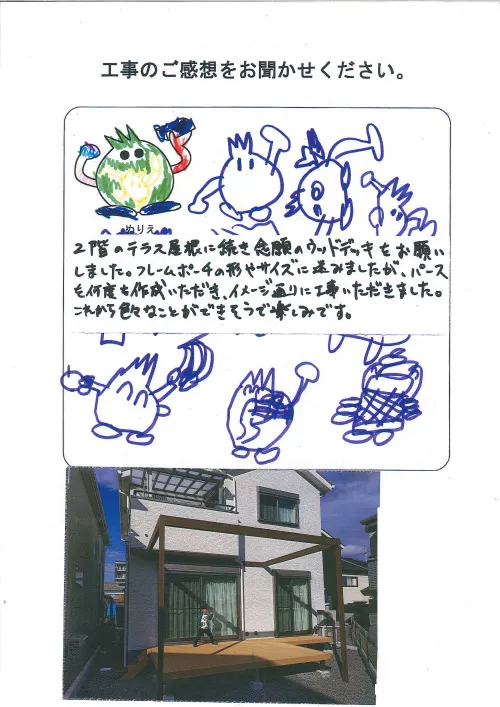 工事のご感想をお聞かせください。
ぬりえ
2階のテラス屋根に続き念願のウッドデッキをお願い
しました。フレームポーチの形やサイズに迷みましたが、パース
も何度も作成いただき、イメージ通りに工事いただきました。
これから色々なことができそうで楽しみです。